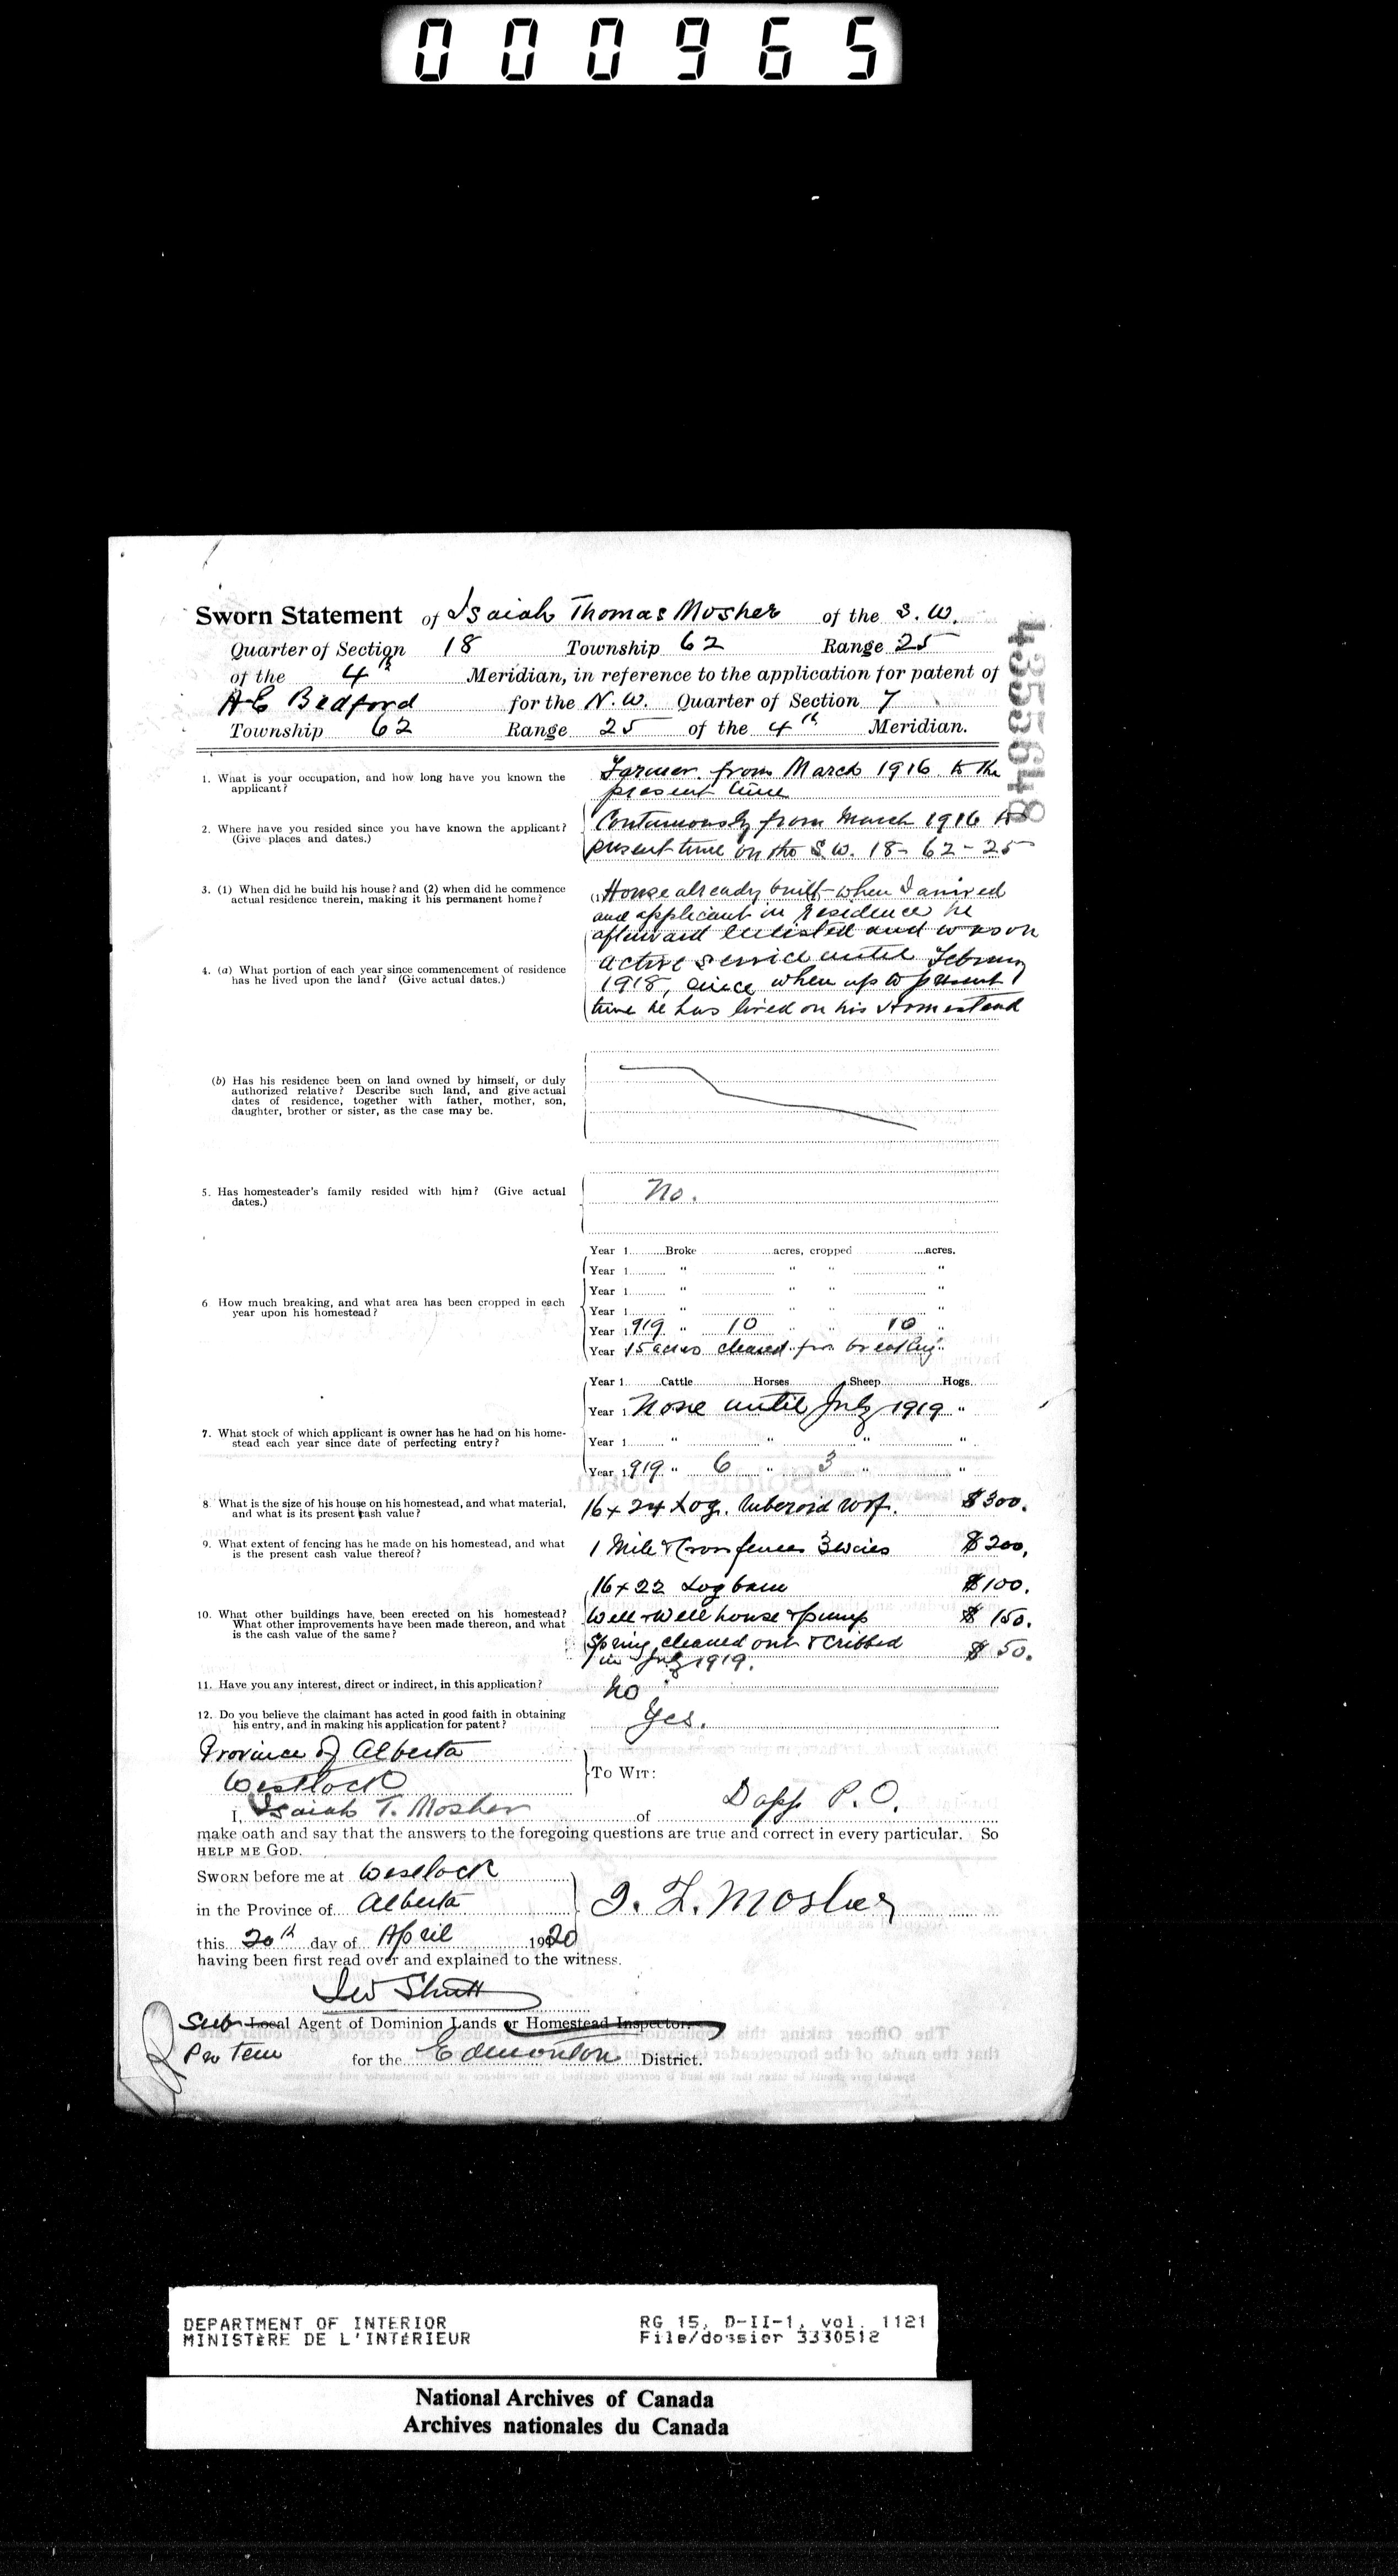 000965
Sworn Statement of Isaiah Thomas Mosher of the S.W.
Quarter of Section 18 Township 62 Range 25
of the 4th Meridian, in reference to the application for patent of
A E Bedford for the N.W. Quarter of Section 7
Township 62 Range 25 of the 4th Meridian.
4355648
1. What is your occupation, and how long have you known the
applicant?
Farmer. from March 1916 to the
present time
2. Where have you resided since you have known the applicant?
(Give places and dates.)
Continuously from March 1916 to
present time on the S.W. 18-62-25
3. (1) When did he build his house? and (2) when did he commence
actual residence therein, making it his permanent home?
(1) House already built when I arrived
and applicant in residence he
afterward enlisted and was on
4. (a) What portion of each year since commencement of residence
has he lived upon the land? (Give actual dates.)
active service until February
1918, since when up to present
time he has lived on his Homestead
(b) Has his residence been on land owned by himself, or duly
authorized relative? Describe such land, and give actual
dates of residence, together with father, mother, son,
daughter, brother or sister, as the case may be.
5. Has homesteader's family resided with him? (Give actual
dates.)
No.
6 How much breaking, and what area has been cropped in each
year upon his homestead?
Year 1 Broke acres, cropped acres.
Year 1 " " " "
Year 1 " " " "
Year 1 " " " "
Year 1919 " 10 " " 10 "
Year 15 acres cleared for breaking.
7. What stock of which applicant is owner has he had on his home-
stead each year since date of perfecting entry?
Year 1 Cattle Horses Sheep Hogs
Year 1 None until July 1919 "
Year 1 " " " "
Year 1919 " 6 " 3 " "
8 What is the size of his house on his homestead, and what material,
and what is its present cash value?
16 x 24 Log. Ruberoid roof. $300.
9. What extent of fencing has he made on his homestead, and what
is the present cash value thereof?
1 Mile & Cross fences 3 wires $200.
10. What other buildings have been erected on his homestead?
What other improvements have been made thereon, and what
is the cash value of the same?
16 x 22 Log barn $100.
Well & Well house & pump $150.
Spring cleaned out & cribbed $50.
in July 1919.
11. Have you any interest, direct or indirect, in this application?
No
12. Do you believe the claimant has acted in good faith in obtaining
his entry, and in making his application for patent?
Yes.
Province of Alberta
Westlock
To Wit:
I, Isaiah T. Mosher of Dapp P.O.
make oath and say that the answers to the foregoing questions are true and correct in every particular. So
help me God.
Sworn before me at Westlock
in the Province of Alberta
I. T. Mosher
this 20th day of April 1920
having been first read over and explained to the witness.
Sub Local Agent of Dominion Lands or Homestead Inspector.
Pro Tem for the Edmonton District.
DEPARTMENT OF INTERIOR
MINISTÈRE DE L'INTÉRIEUR
RG 15, D-II-1, vol. 1121
File/dossier 3330512
National Archives of Canada
Archives nationales du Canada